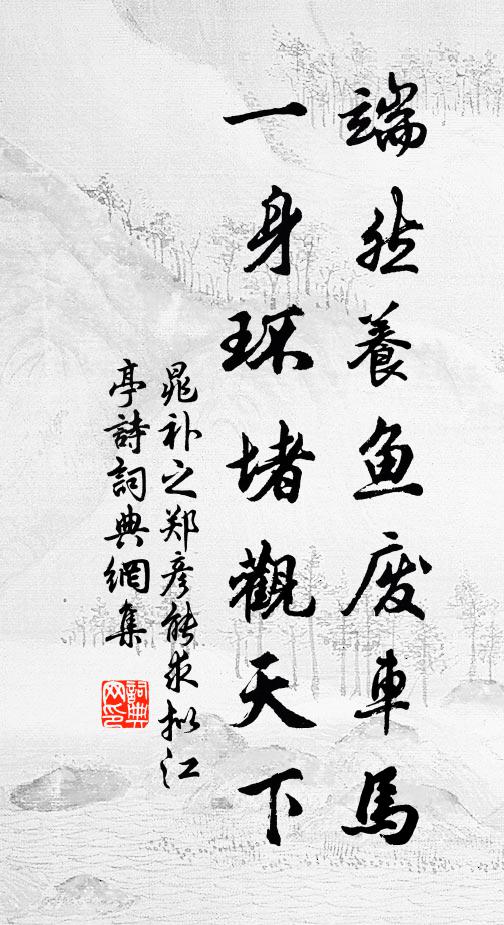 端然養鱼废車馬
一身环堵觀天下
晁补之郑彦能求拟江
亭詩詞典網集
詞典
网印